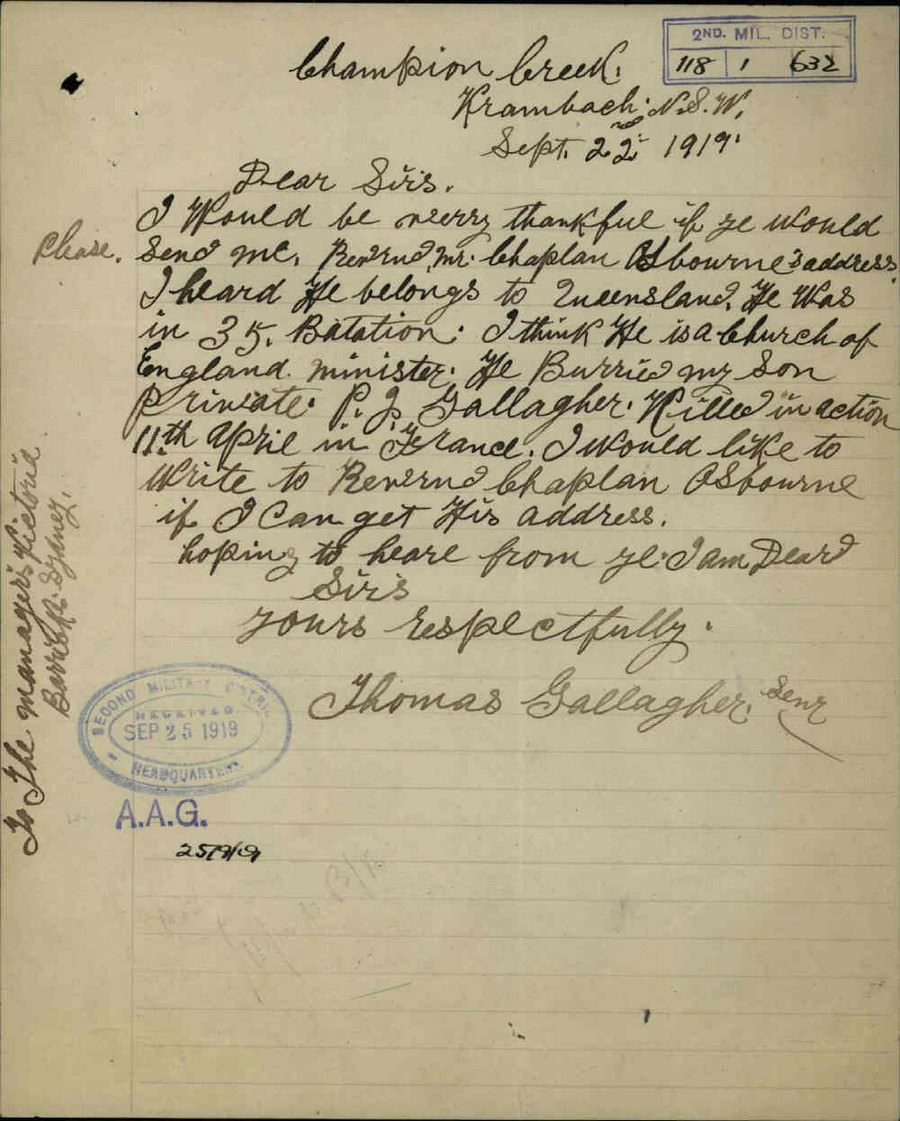 2ND. MIL. DIST.
118 1 632
Champion Creek.
Krambach. N.S.W.
Sept. 22 1919.
Dear Sirs.
I Would be verry thankful if ye would
Please. send me. Revernd, Mr. Chaplan Osbourne's address.
I heard He belongs to Queensland. He Was
in 35. Batation. I think He is a Church of
England. minister. He Burried my Son
Private. P. J. Gallagher. Killed in action
11th April in France. I would like to
Write to Revernd Chaplan Osbourne
if I Can get His address.
hoping to heare from ye. I am Deard
Sirs
yours respectfully.
Thomas Gallagher. Senr
To The manager's Victoria
Barricks. Sydney.
SECOND MILITARY DISTRICT
RECEIVED
SEP 25 1919
HEADQUARTERS
A.A.G.
25/9/19